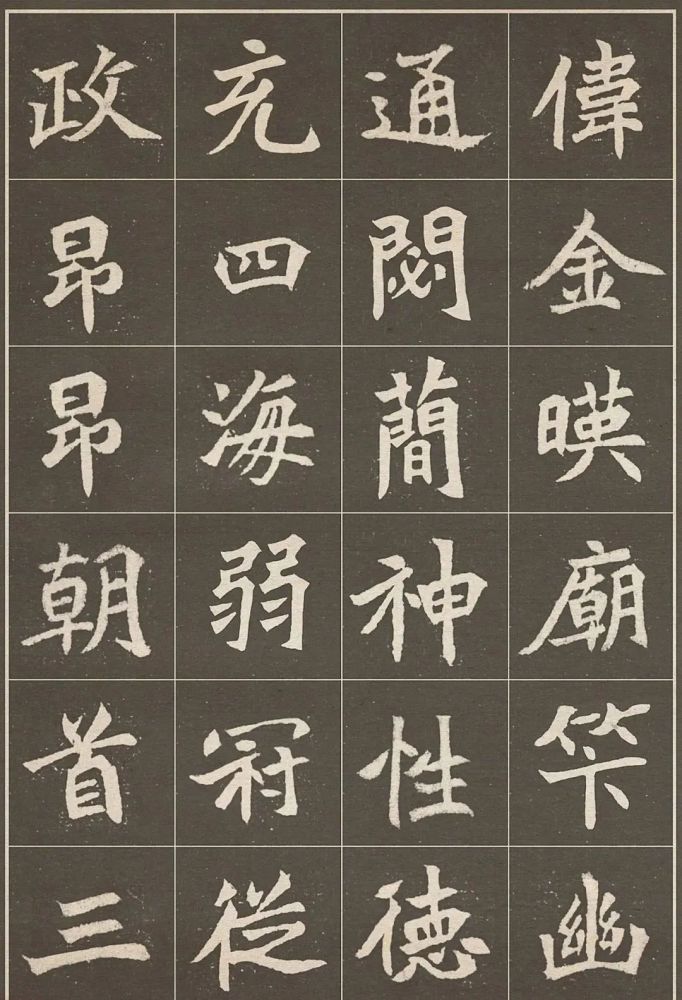 偉金暎廟笇幽
通閟蕳神性徳
充四海弱冠從
政昂昂朝首三